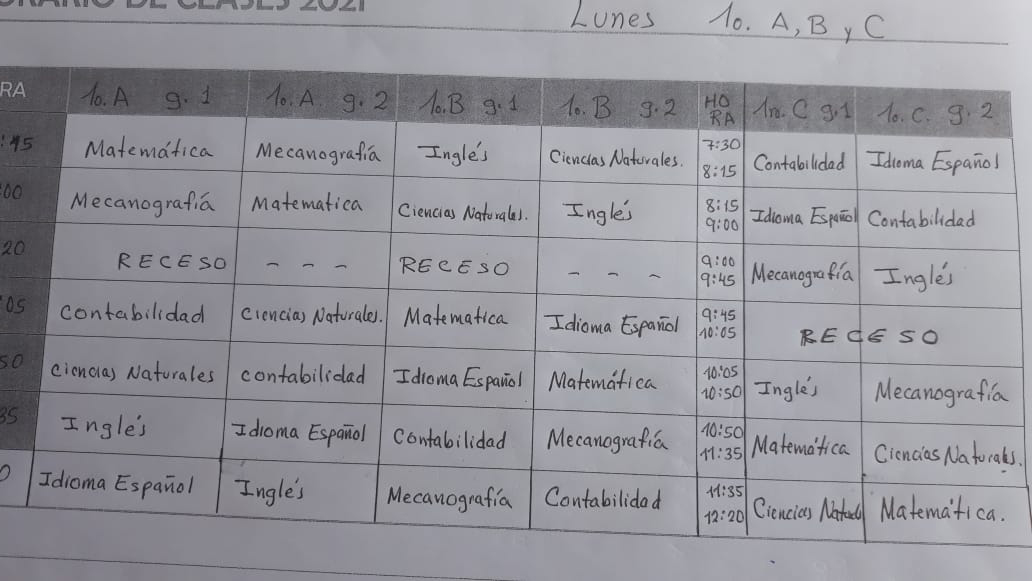 HORARIO DE CLASES 2021
Lunes 1o. A, B y C
RA 1o. A g. 1 1o. A g. 2 1o. B g. 1 1o. B g. 2 HO RA 1ro. C g. 1 1o. C. g. 2
:45 Matemática Mecanografía Inglés Ciencias Naturales. 7:30 8:15 Contabilidad Idioma Español
:00 Mecanografía Matematica Ciencias Naturales. Inglés 8:15 9:00 Idioma Español Contabilidad
20 RECESO - - - RECESO - - - 9:00 9:45 Mecanografía Inglés
:05 Contabilidad Ciencias Naturales. Matematica Idioma Español 9:45 10:05 RECESO
50 Ciencias Naturales contabilidad Idioma Español Matemática 10:05 10:50 Inglés Mecanografía
35 Inglés Idioma Español Contabilidad Mecanografía 10:50 11:35 Matemática Ciencias Naturales.
0 Idioma Español Inglés Mecanografía Contabilidad 11:35 12:20 Ciencias Naturales Matemática.